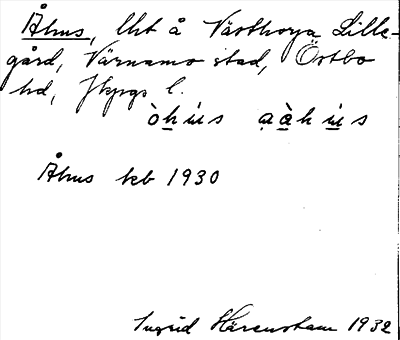 Åhus, lht å Västhorja Lille-
gård, Värnamo stad, Östbo
hd, Jkpgs l.
òh̲ús a̤à̲hú̲s
Åhus kb 1930
Ingrid Härenstam 1932